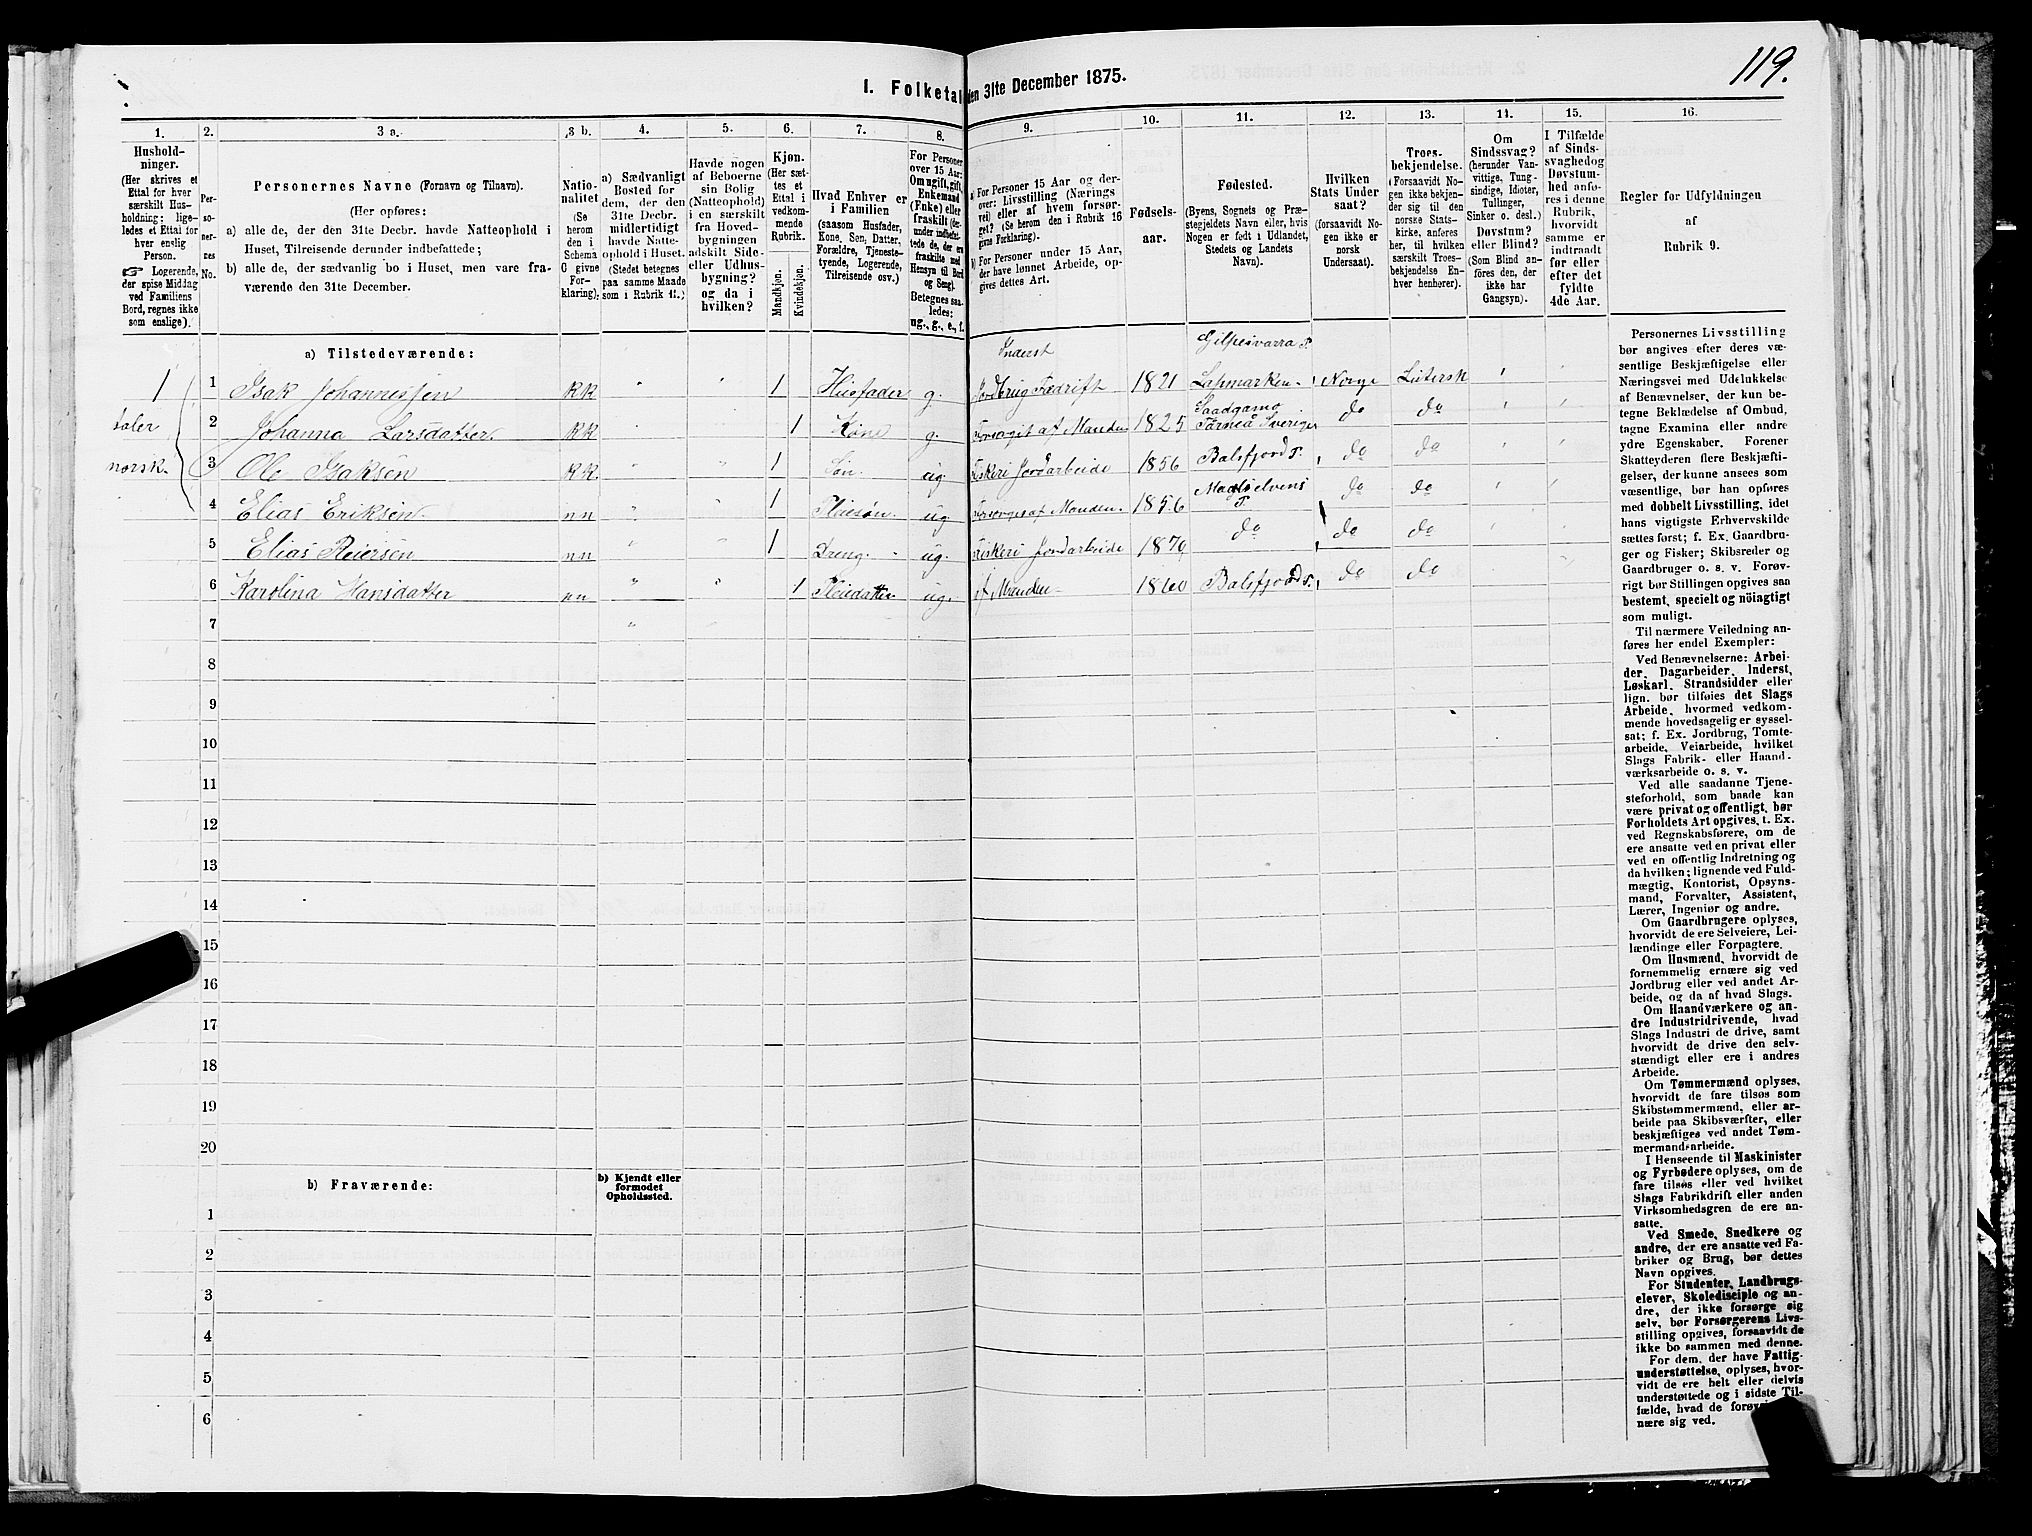 119.
I. Folketal den 31te December 1875.
1.
Hushold-
ninger.
(Her skrives et
Ettal for hver
særskilt Hus-
holdning; lige-
ledes et Ettal for
hver enslig
Person.
☞ Logerende,
der spise Middag
ved Familiens
Bord, regnes ikke
som enslige).
2.
Per-
so-
ner-
nes
No.
3 a.
Personernes Navne (Fornavn og Tilnavn).
(Her opføres:
a) alle de, der den 31te Decbr. havde Natteophold i
Huset, Tilreisende derunder indbefattede;
b) alle de, der sædvanlig bo i Huset, men vare fra-
værende den 31te December.
3 b.
Natio-
nalitet
(Se
herom
den i
Schema
G givne
For-
klaring).
4.
a) Sædvanligt
Bosted for
dem, der den
31te Decbr.
midlertidigt
havde Natte-
ophold i Huset.
(Stedet betegnes
paa samme Maade
som i Rubrik 11.)
5.
Havde nogen
af Beboerne
sin Bolig
(Natteophold)
i en særskilt
fra Hoved-
bygningen
adskilt Side-
eller Udhus-
bygning?
og da i
hvilken?
6.
Kjøn.
(Her sæt-
tes et
Ettal i
vedkom-
mende
Rubrik.
Mandkjøn.
Kvindekjøn.
7.
Hvad Enhver er
i Familien
(saasom Husfader,
Kone, Søn, Datter,
Forældre, Tjeneste-
tyende, Logerende,
Tilreisende osv.)
8.
For Personer
over 15 Aar:
Om ugift, gift,
Enkemand
(Enke) eller
fraskilt (der-
under indbefat-
tede de, der ere
fraskilte med
Hensyn til Bord
og Seng).
Betegnes saa-
ledes:
ug., g., e., f.
9.
a) For Personer 15 Aar og der-
over: Livsstilling (Nærings
vei) eller af hvem forsør-
get? (Se herom den i Rubrik 16
givne Forklaring).
b) For Personer under 15 Aar,
der have lønnet Arbeide, op-
gives dettes Art.
10.
Fødsels-
aar.
11.
Fødested.
(Byens, Sognets og Præ-
stegjeldets Navn eller, hvis
Nogen er født i Udlandet,
Stedets og Landets
Navn).
12.
Hvilken
Stats Under
saat?
(forsaavidt No-
gen ikke er
norsk
Undersaat).
13.
Troes-
bekjendelse.
(Forsaavidt No-
gen ikke bekjen-
der sig til den
norske Stats-
kirke, anføres
her, til hvilken
særskilt Troes-
bekjendelse En-
hver henhører).
14.
Om
Sindssvag?
(herunder Van-
vittige, Tung-
sindige, Idioter,
Tullinger,
Sinker o. desl.)
Døvstum?
eller Blind?
(Som Blind an-
føres den, der
ikke har
Gangsyn).
15.
I Tilfælde
af Sinds-
svaghed og
Døvstum-
hed anfø-
res i denne
Rubrik,
hvorvidt
samme er
indtraadt
før eller
efter det
fyldte
4de Aar.
16.
Regler for Udfyldningen
af
Rubrik 9.
a) Tilstedeværende:
Inderst Gilpesvarra
1 1 Isak Johannessen KK " " 1 Husfader g. Jordbrug Fædrift 1821 Lapmarken Norge Lutersk
taler 2 Johanna Larsdatter KK 1 Kone g. Forsørget af Manden 1825 Saadgamo Torneå Sverige do do
norsk. 3 Ole Isaksen KK " " 1 Søn ug. Fiskeri Jordarbeide 1856 Balsfjord do do
4 Elias Eriksen nn " " 1 Pleiesøn ug. Forsørges af Manden 1856 Maalselvens do do
5 Elias Reiersen nn " " 1 Dreng ug. Fiskeri Jordarbeide 1870 do do do
6 Karolina Hansdatter nn " " 1 Pleiedatter ug. af Manden 1860 Balsfjord do do
7 " "
8
9
10
11
12
13
14
15
16
17
18
19
20
b) Fraværende:
b) Kjendt eller
formodet
Opholdssted.
1
2
3
4
5
6
Personernes Livsstilling
bør angives efter deres væ-
sentlige Beskjæftigelse eller
Næringsvei med Udelukkelse
af Benævnelser, der kun be-
tegne Beklædelse af Ombud,
tagne Examina eller andre
ydre Egenskaber. Forener
Skatteyderen flere Beskjæfti-
gelser, der kunne ansees som
væsentlige, bør han opføres
med dobbelt Livsstilling, idet
hans vigtigste Erhvervskilde
sættes først; f. Ex. Gaardbru-
ger og Fisker; Skibsreder og
Gaardbruger o. s. v. Forøv-
rigt bør Stillingen opgives saa
bestemt, specielt og nøiagtigt
som muligt.
Til nærmere Veiledning an-
føres her endel Exempler:
Ved Benævnelserne: Arbei-
der, Dagarbeider, Inderst,
Løskarl, Strandsidder eller
lign. bør tilføies det Slags
Arbeide, hvormed vedkom-
mende hovedsagelig er syssel-
sat; f. Ex. Jordbrug, Tomte-
arbeide, Veiarbeide, hvilket
Slags Fabrik- eller Haand-
værksarbeide o. s. v.
Ved alle saadanne Tjene-
steforhold, som baade kan
være privat og offentligt, bør
Forholdets Art opgives, t. Ex.
ved Regnskabsførere, om de
ere ansatte ved en privat eller
ved en offentlig Indretning og
da hvilken; lignende ved Fuld-
mægtig, Kontorist, Opsyns-
mand, Forvalter, Assistent,
Lærer, Ingeniør og andre.
Om Gaardbrugere oplyses,
hvorvidt de ere Selveiere, Lei-
lændinge eller Forpagtere.
Om Husmænd, hvorvidt de
fornemmelig ernære sig ved
Jordbrug eller ved andet Ar-
beide, og da af hvad Slags.
Om Haandværkere og an-
dre Industridrivende, hvad
Slags Industri de drive, samt
hvorvidt de drive den selv-
stændigt eller ere i andres
Arbeide.
Om Tømmermænd oplyses,
hvorvidt de fare tilsøs som
Skibstømmermænd, eller ar-
beide paa Skibsværfter, eller
beskjæftiges ved andet Tøm-
mermandsarbeide.
I Henseende til Maskinister
og Fyrbødere oplyses, om de
fare tilsøs eller ved hvilket
Slags Fabrikdrift eller anden
Virksomhedsgren de ere an-
satte.
Ved Smede, Snedkere og
andre, der ere ansatte ved Fa-
briker og Brug, bør dettes
Navn opgives.
For Studenter, Landbrugs-
elever, Skoledisciple og an-
dre, der ikke forsørge sig
selv, bør Forsørgerens Livs-
stilling opgives, forsaavidt de
ikke bo sammen med denne.
For dem, der have Fattig-
understøttelse, oplyses, hvor-
vidt de ere helt eller delvis
understøttede og i sidste Til-
fælde, hvad de forøvrigt
nære sig ved.